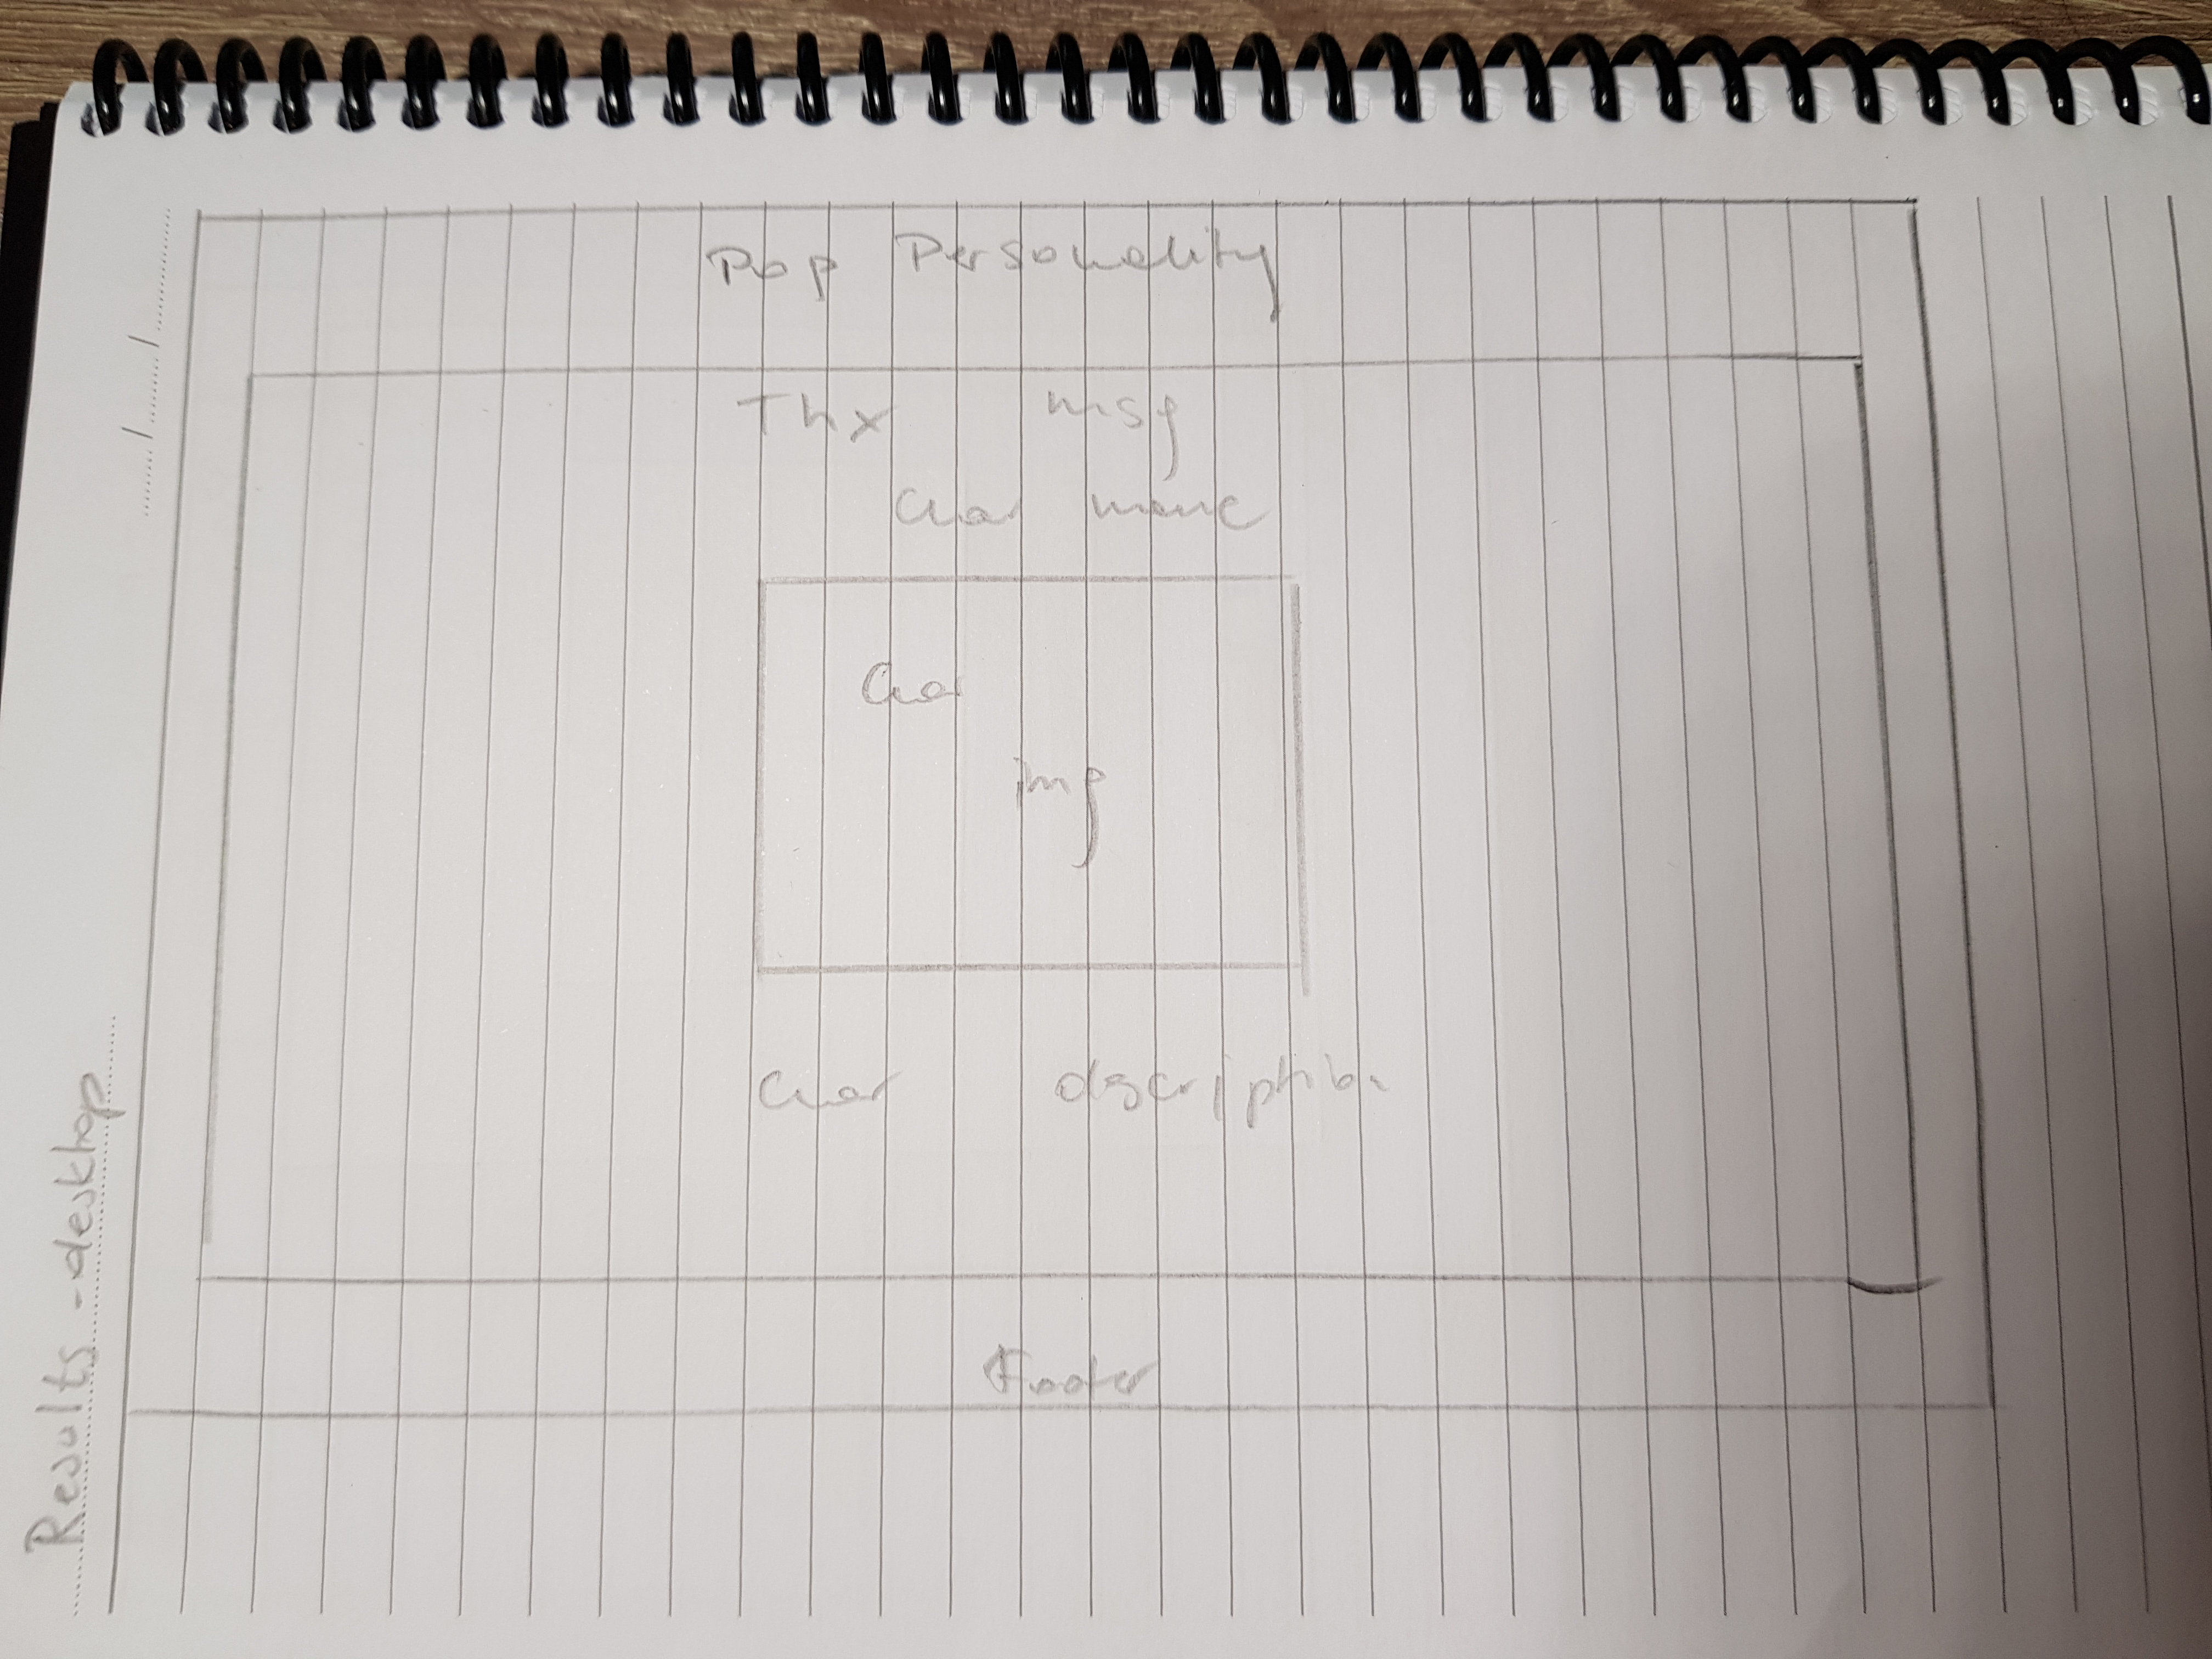 Results - desktop
Pop Personality
Thx msg
Char name
Char
img
Char description
Footer